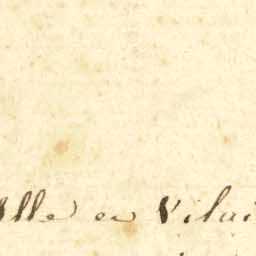 Ille en Vilai